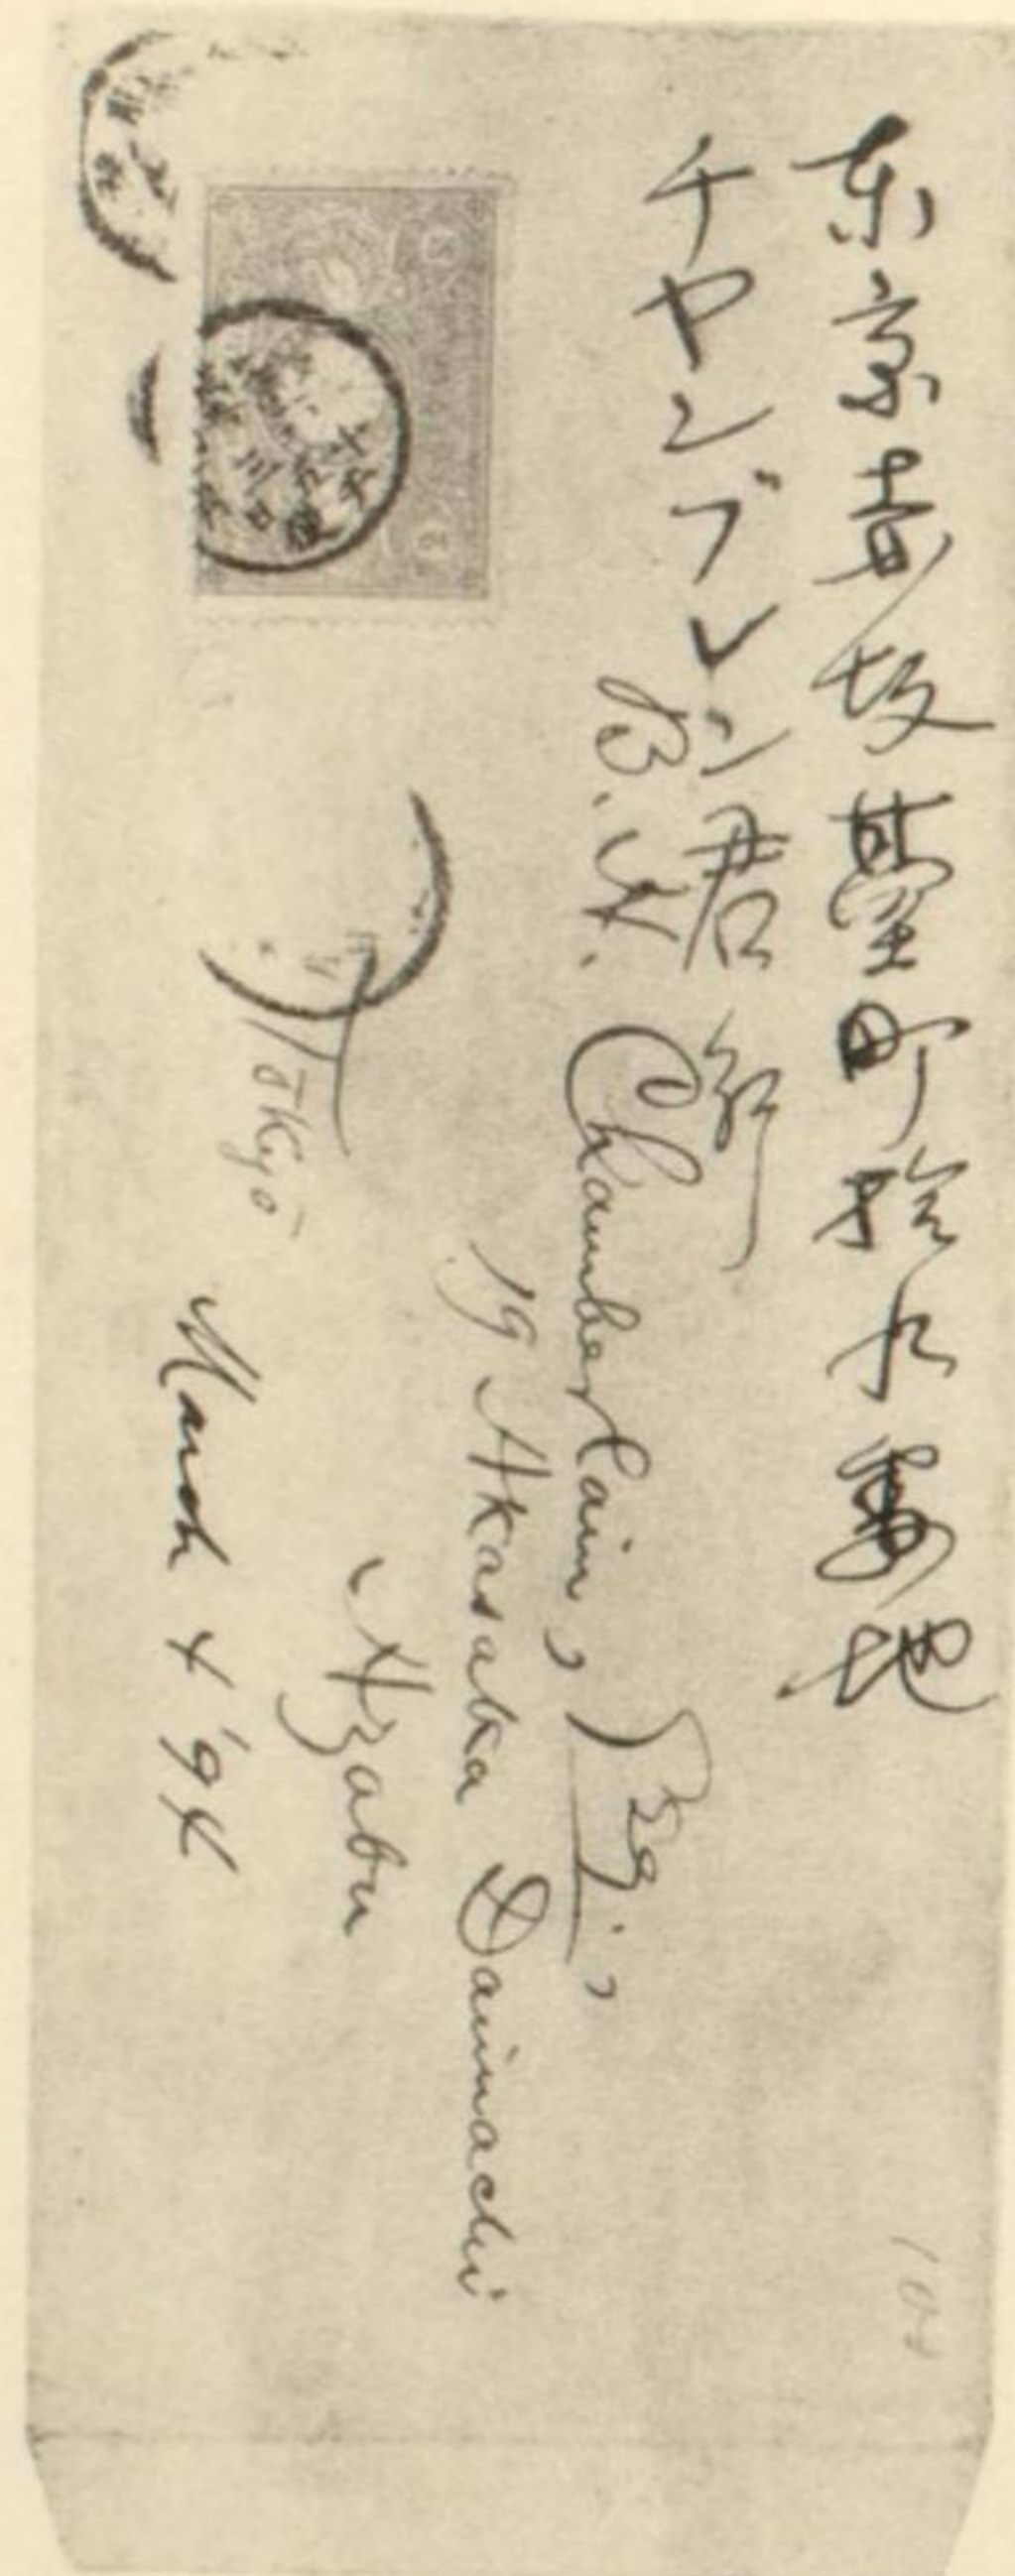 東京赤坂臺町拾九番地
チヤンブレン君
B. H. Chamberlain, Esq.,
19 Akasaka Daimachi
Azabu
Tōkyō
March 4 '94